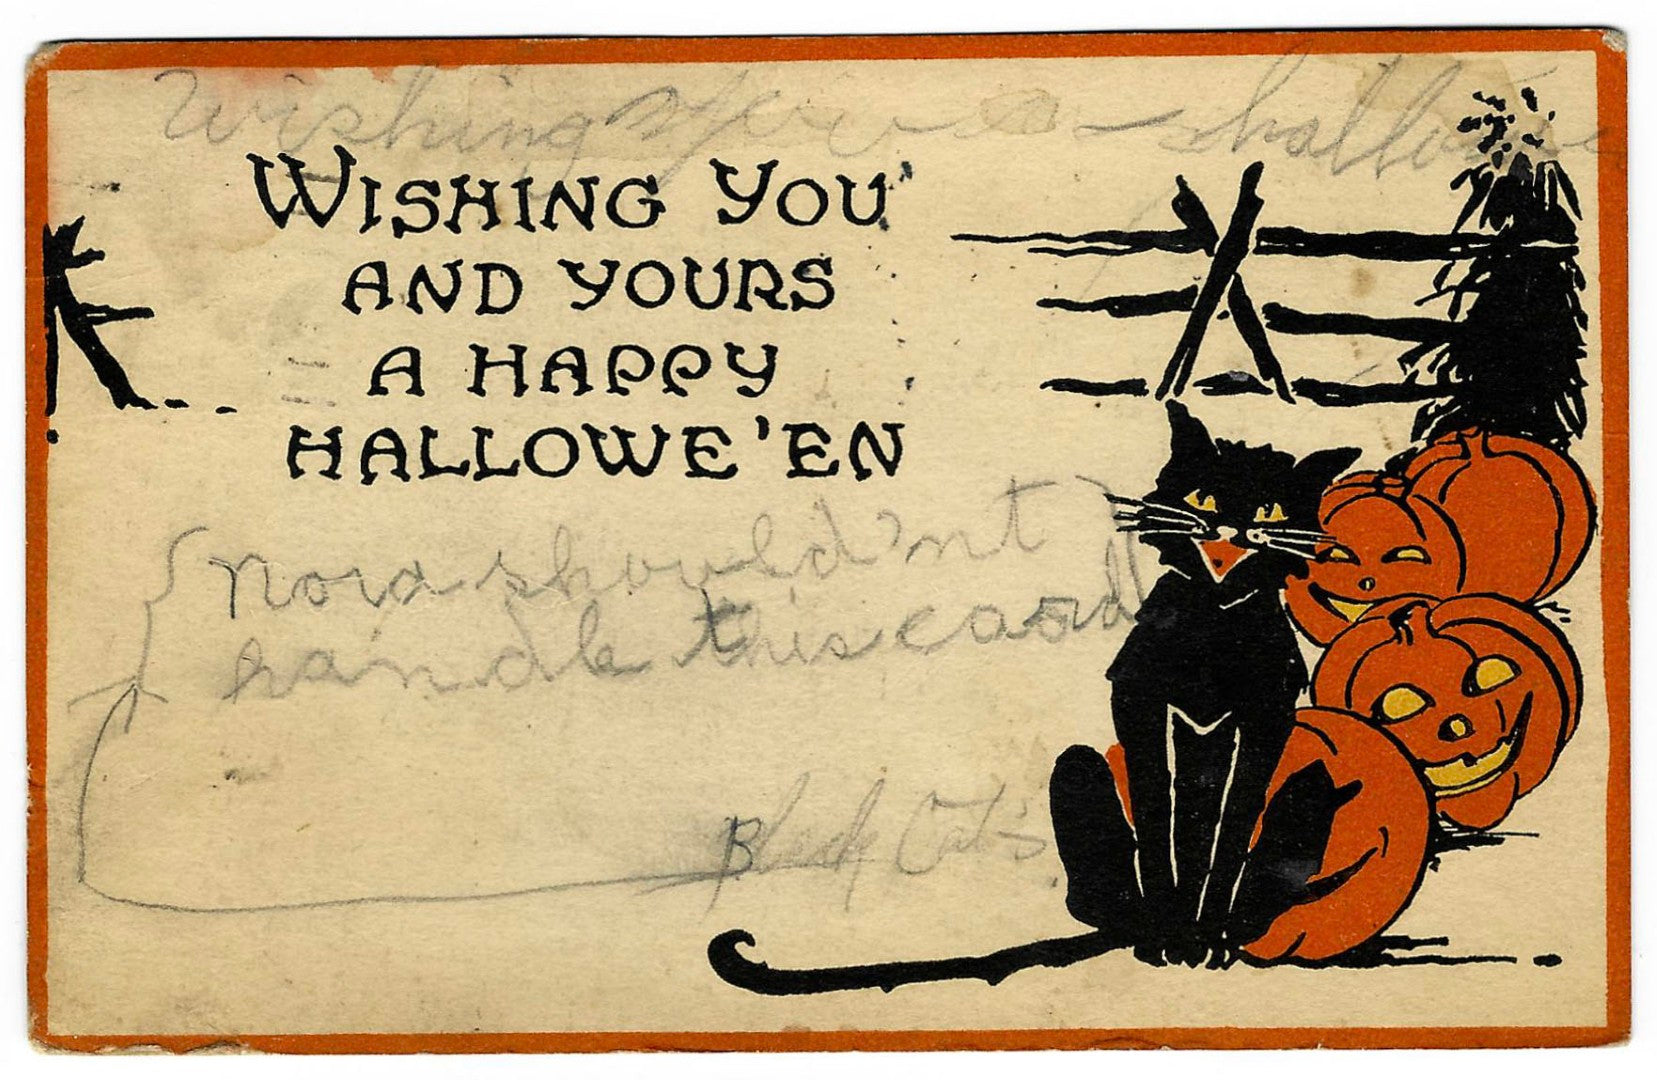 Wishing you a hallowe
WISHING YOU
AND YOURS
A HAPPY
HALLOWE'EN
Nora should'nt
handle this card
Black Cats